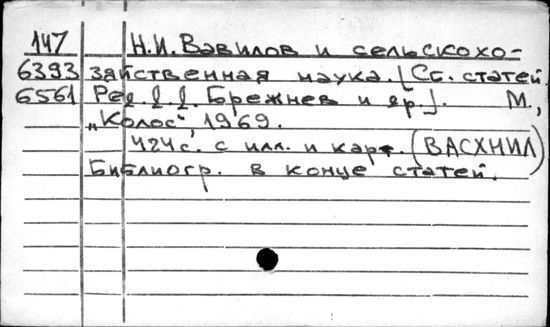 147 Н.И. Вавилов и сельскохо-
6393 зяйственная наука. [Сб. статей.
6561 Ред. Д. Д. Брежнев и др.]. М.,
„Колос“, 1969.
424 с. с илл. и карт. (ВАСХНИЛ)
Библиогр. в конце статей.